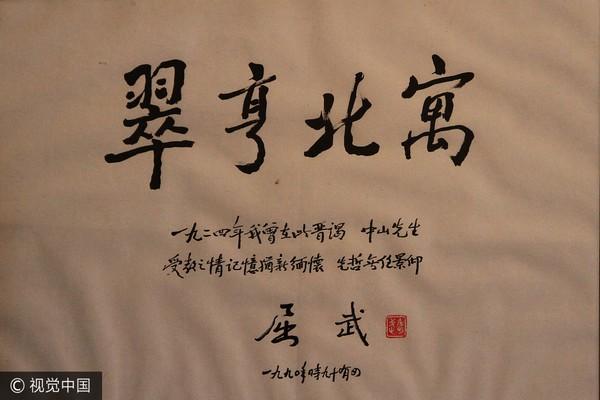 翠亨北寓
一九二四年我曾在此晋谒 中山先生
受教之情记憶猶新缅懷 先哲无任景仰
屈武
一九九〇年時九十有四
© 视觉中国